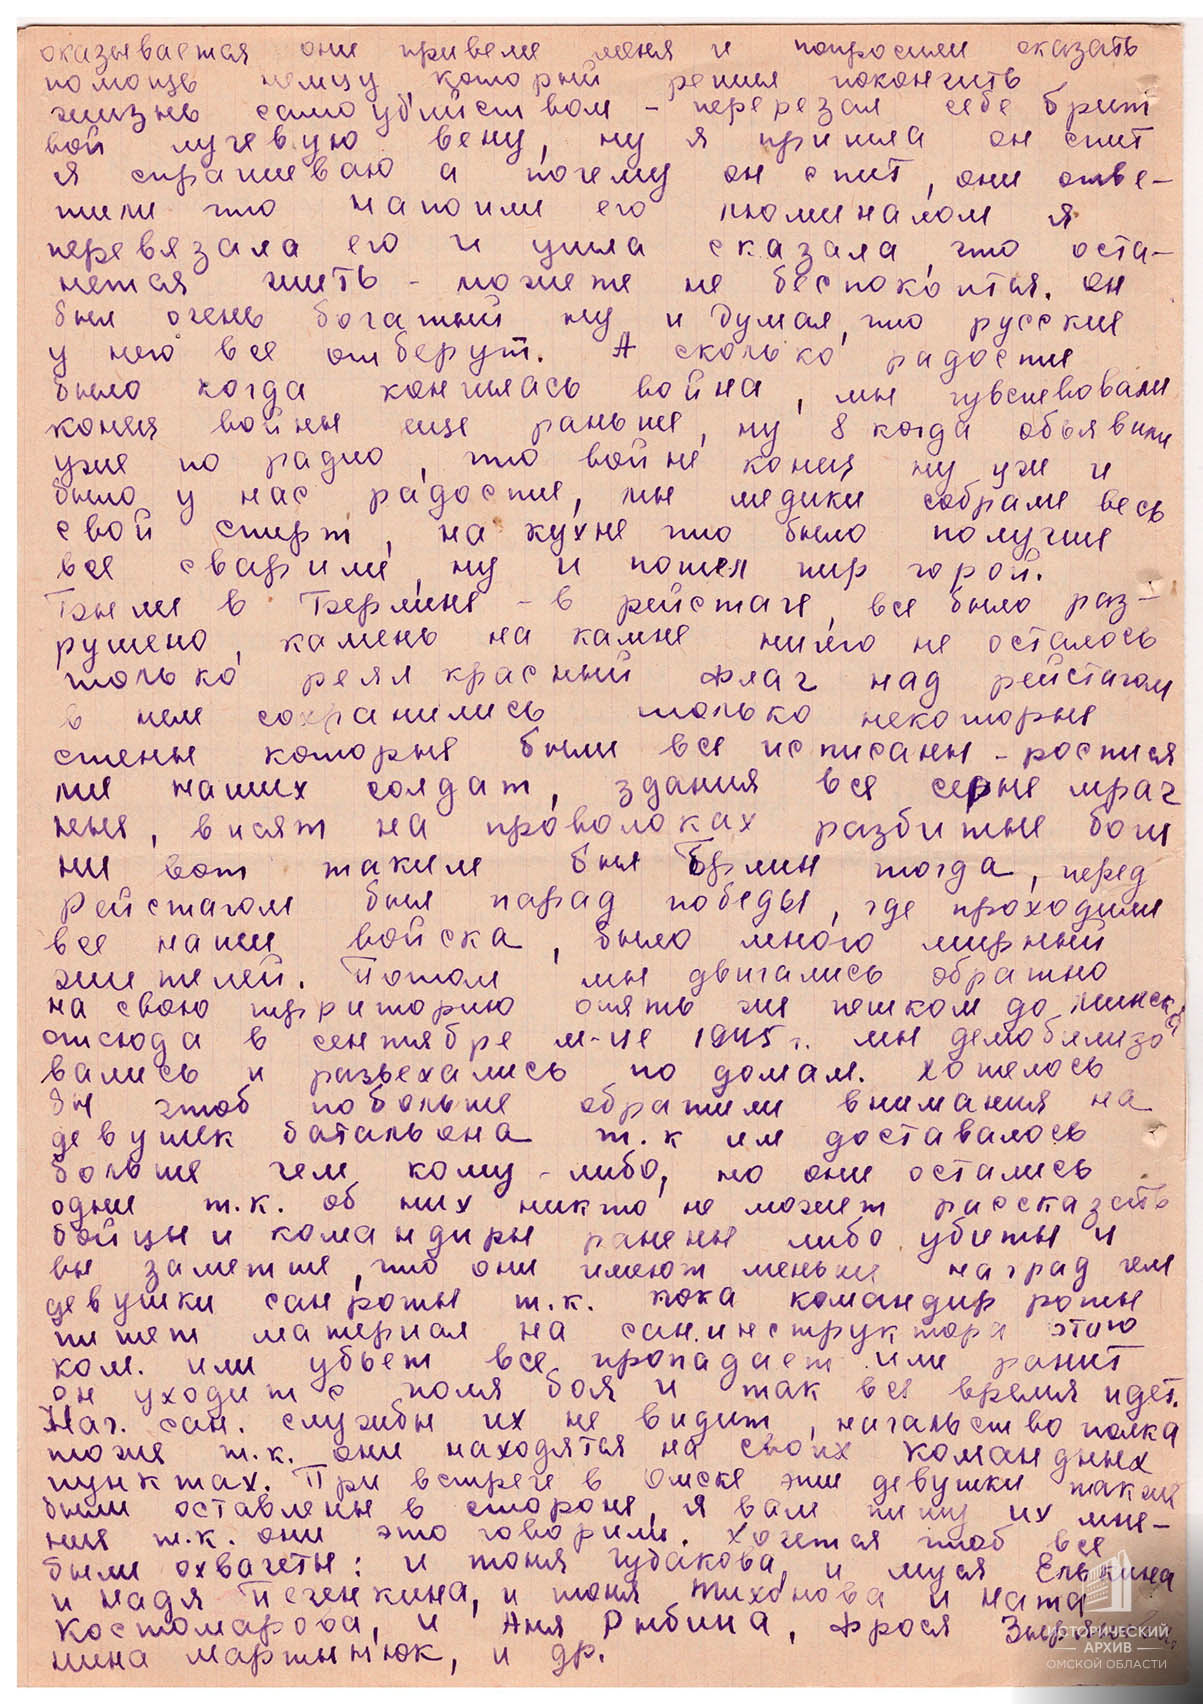 оказывается они привели меня и попросили оказать
помощь немцу, который решил покончить
жизнь самоубийством - перерезал себе брит
вой лучевую вену, ну я пришла он спит
я спрашеваю а почему он спит, они отве-
тили что напоили его люминалом я
перевязала его и ушла сказала, что оста-
нется жить - можете не беспокоится. Он
был очень богатый ну и думал, что русские
у него все отберут. А сколько радости
было когда кончилась война, мы чувствовали
конец войны еще раньше, ну а когда обьявили
уже по радио, что войне конец ну уж и
было у нас радости, мы медики собрали весь
свой спирт, на кухне что было получше
все сварили, ну и пошел пир горой.
Были в Берлине - в рейстаге, все было раз-
рушено, камень на камне ничего не осталось
только реял красный флаг над рейстагом
в нем сохранились только некоторые
стены которые были все исписаны - росписа
ми наших солдат, здания все серые мрач
ные, висят на проволоках разбитые баш
ни вот таким был Берлин тогда, перед
Рейстагом был парад победы, где проходили
все наши войска, было много мирный
жителей. Потом мы двигались обратно
на свою территорию опять же пешком до минска
отсюда в сентябре м-це 1945 г. мы демобилизо
вались и разьехались по домам. Хотелось
бы чтоб побольше обратили внимания на
девушек батальона т.к им доставалось
больше чем кому-либо, но они остались
одни т.к. об них никто не может рассказать
бойцы и командиры ранены либо убиты и
вы заметте, что они имеют меньше наград чем
девушки санроты т.к. пока командир роты
пишет материал на сан.инструктора этого
ком. или убьет все пропадает или ранит
он уходит с поля боя и так все время идет.
Нач. сан. службы их не видит, начальство полка
тоже т.к. они находятся на своих командных
пунктах. При встрече в Омске эти девушки также
были оставлены в стороне, я вам пишу их мне-
ния т.к. они это говорили. Хочется чтоб все
были охвачеты: и тоня чудакова, и муся Елькина
и надя Печенкина, и тоня тихонова и ната
костомарова, и Аня Рыбина, фрося
нина мартынюк, и др.
ИСТОРИЧЕСКИЙ
АРХИВ
ОМСКОЙ ОБЛАСТИ